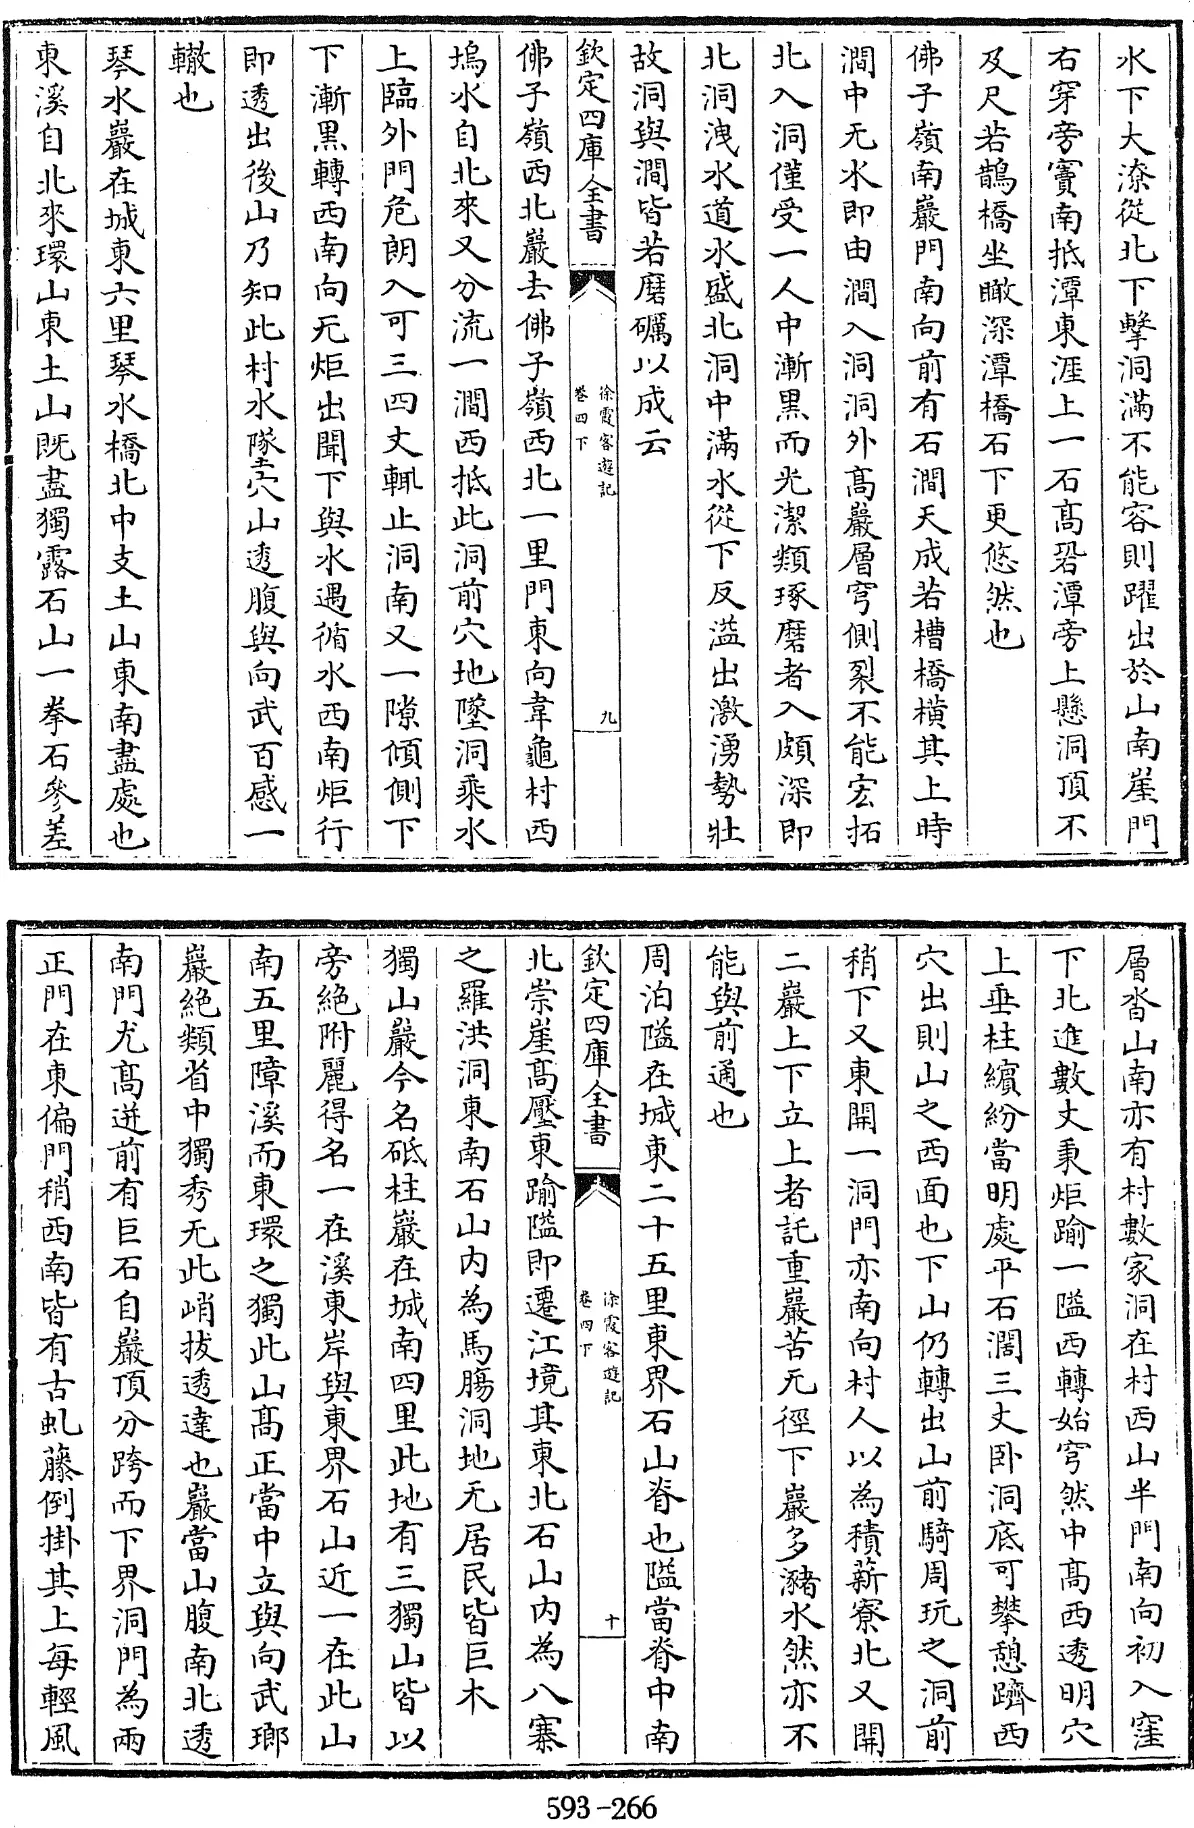 水下大潦從北下擊洞滿不能容則躍出於山南崖門
右穿旁竇南抵潭東涯上一石高碧潭旁上懸洞頂不
及尺若鵲橋坐瞰深潭橋石下更悠然也
佛子嶺南巖門南向前有石澗天成若槽橋橫其上時
澗中无水即由澗入洞洞外高巖層穹側裂不能宏拓
北入洞僅受一人中漸黑而光潔類琢磨者入頗深即
北洞洩水道水盛北洞中滿水從下反溢出激湧勢壯
故洞與澗皆若磨礪以成云
欽定四庫全書
徐霞客遊記
卷四下
九
佛子嶺西北巖去佛子嶺西北一里門東向韋龜村西
塢水自北來又分流一澗西抵此洞前穴地墜洞乘水
上臨外門危朗入可三四丈輒止洞南又一隙傾側下
下漸黑轉西南向无炬出聞下與水遇循水西南炬行
即透出後山乃知此村水墜穴山透腹與向武百感一
轍也
琴水巖在城東六里琴水橋北中支土山東南盡處也
東溪自北來環山東土山既盡獨露石山一拳石參差
層沓山南亦有村數家洞在村西山半門南向初入窪
下北進數丈秉炬踰一隘西轉始穹然中高西透明穴
上垂柱繽紛當明處平石濶三丈卧洞底可攀憩躋西
穴出則山之西面也下山仍轉出山前騎周玩之洞前
稍下又東開一洞門亦南向村人以為積薪寮北又開
二巖上下立上者託重巖苦无徑下巖多瀦水然亦不
能與前通也
周泊隘在城東二十五里東界石山脊也隘當脊中南
欽定四庫全書
徐霞客遊記
卷四下
十
北崇崖高壓東踰隘即遷江境其東北石山内為八寨
之羅洪洞東南石山内為馬膓洞地无居民皆巨木
獨山巖今名砥柱巖在城南四里此地有三獨山皆以
旁絕附麗得名一在溪東岸與東界石山近一在此山
南五里障溪而東環之獨此山高正當中立與向武瑯
巖絕類省中獨秀无此峭拔透達也巖當山腹南北透
南門尤高迸前有巨石自巖頂分跨而下界洞門為兩
正門在東偏門稍西南皆有古虬藤倒掛其上每輕風
593-266